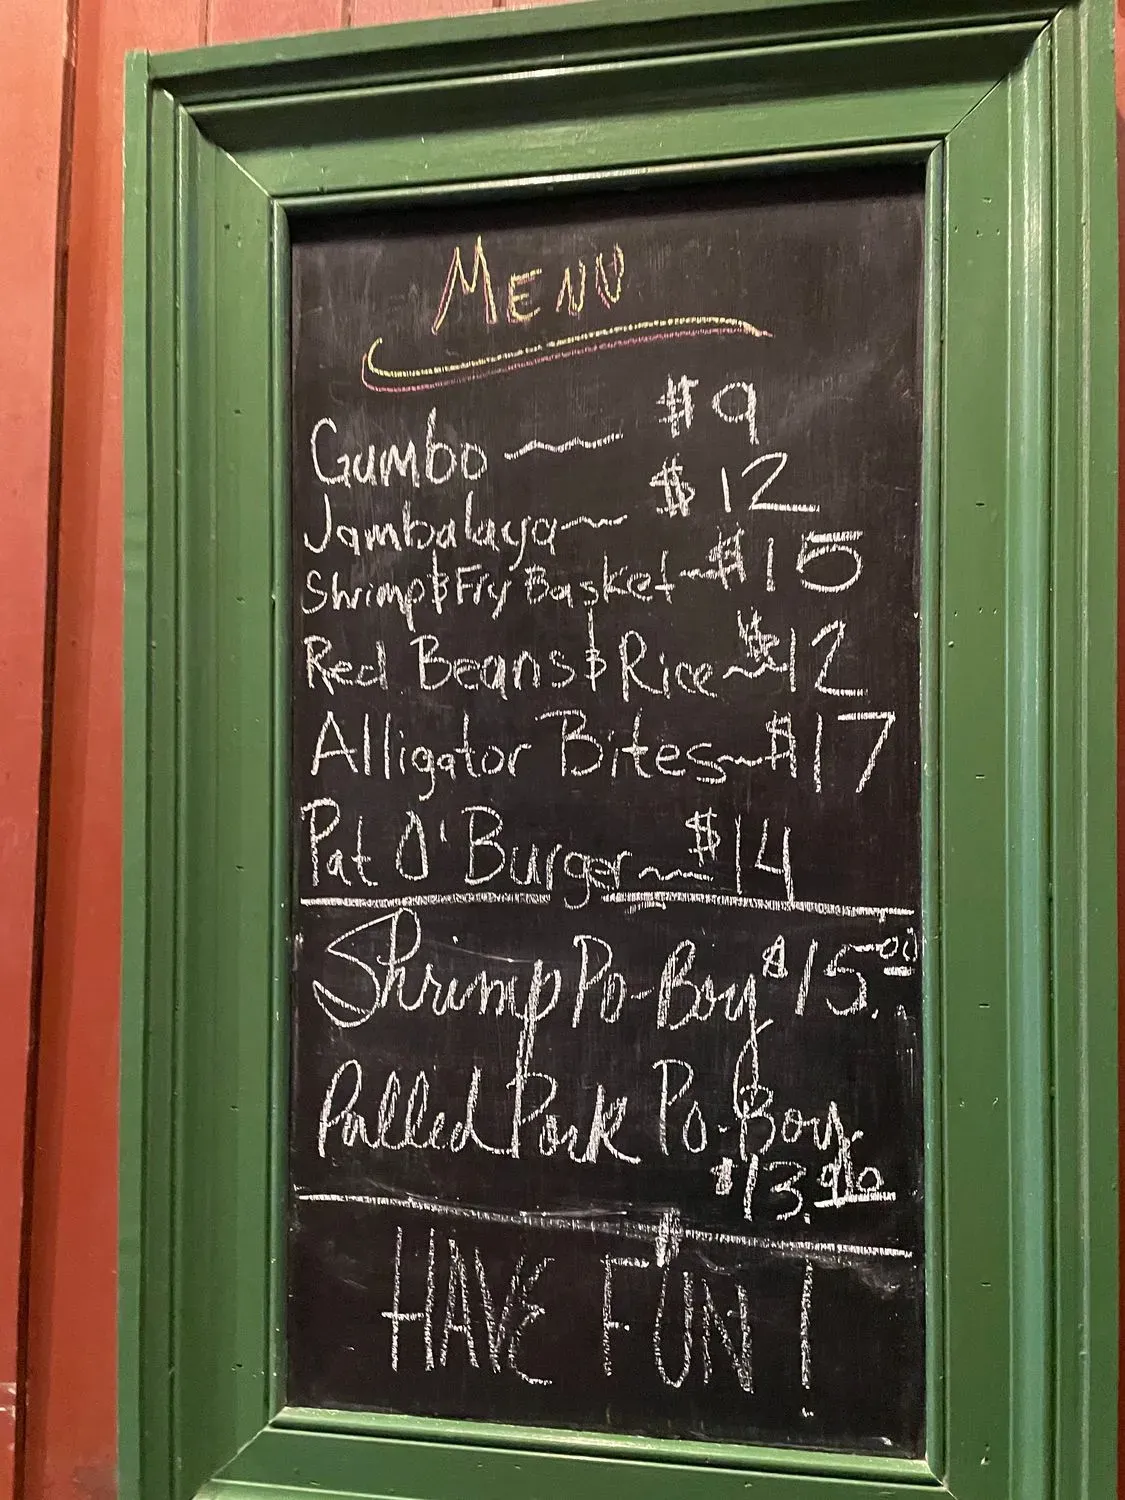 MENU
Gumbo ~ $9
Jambalaya ~ $12
Shrimp & Fry Basket ~ $15
Red Beans & Rice ~ $12
Alligator Bites ~ $17
Pat O' Burger ~ $14
Shrimp Po-Boy $15.00
Pulled Pork Po-Boy
$13.00
HAVE FUN!